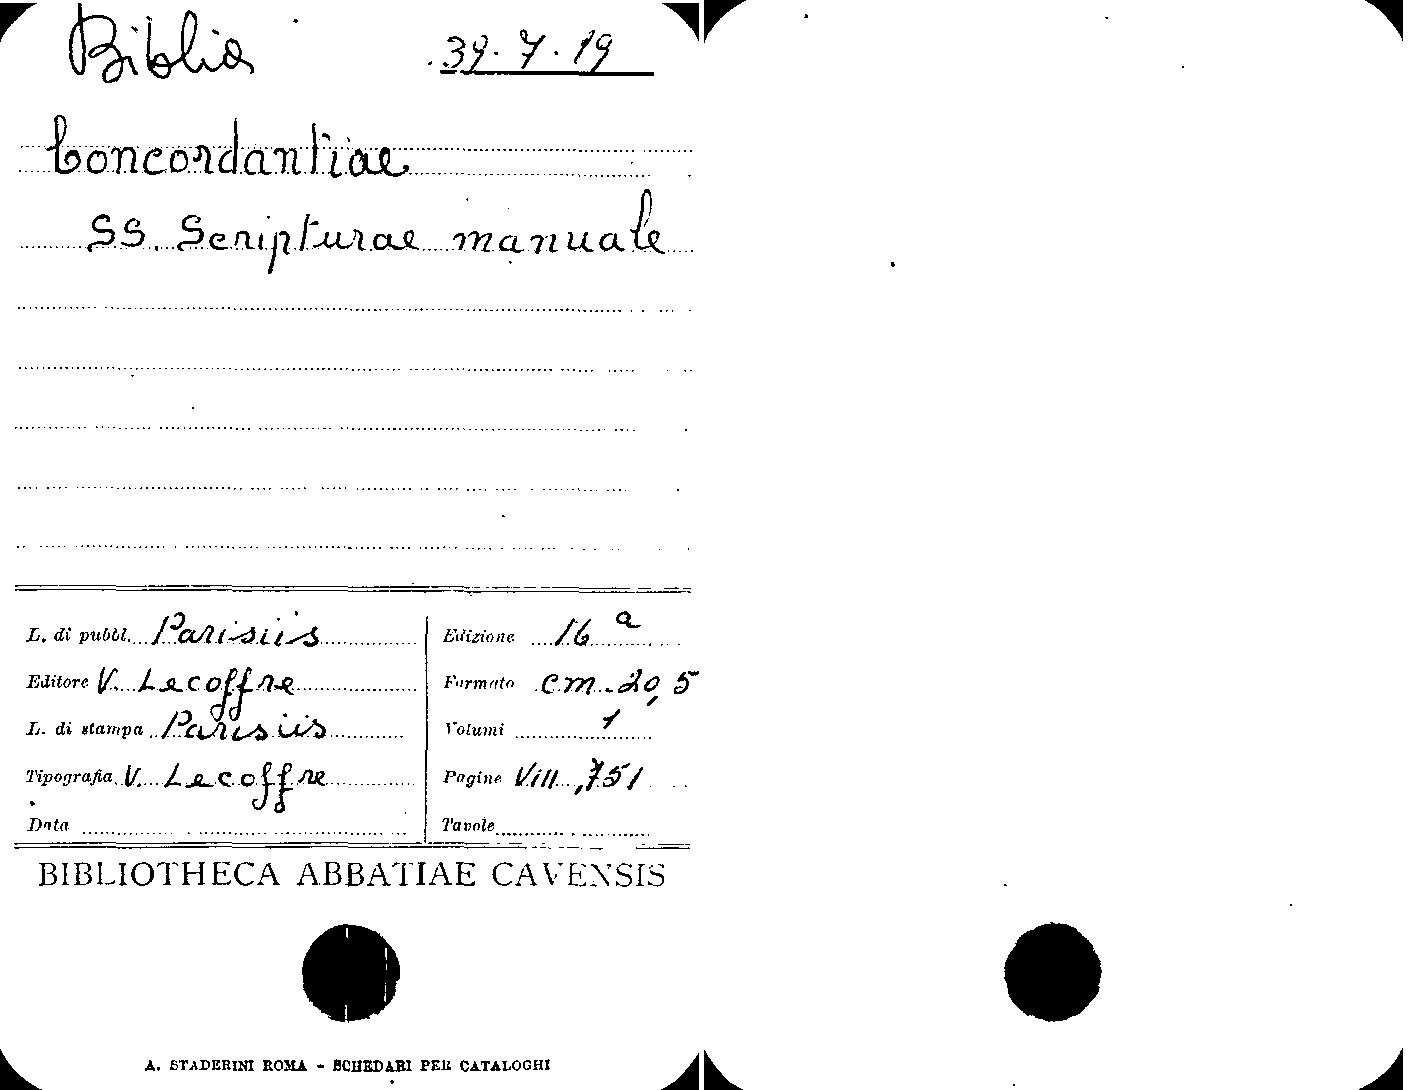 Biblia 39.7.19
Concordantiae
SS. Scripturae manuale
L. di pubbl. Parisiis
Editore V. Lecoffre
L. di stampa Parisiis
Tipografia V. Lecoffre
Data
Edizione 16a
Formato cm. 20,5
Volumi 1
Pagine VIII, 751
Tavole
BIBLIOTHECA ABBATIAE CAVENSIS
A. STADERINI ROMA - SCHEDARI PER CATALOGHI